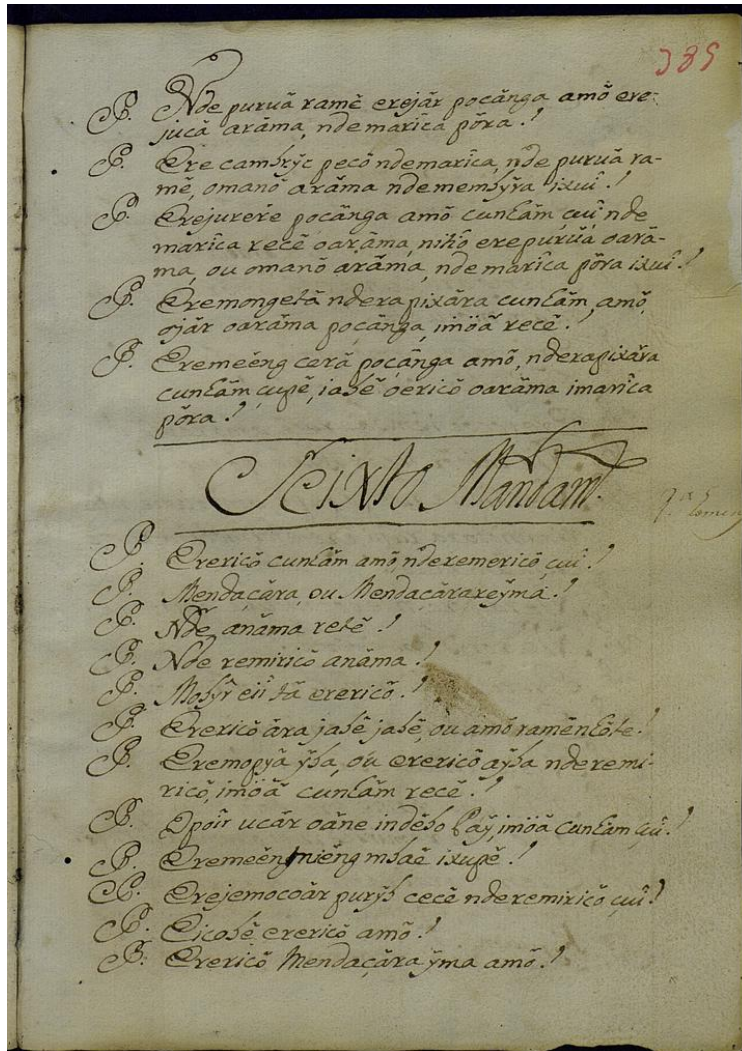 389
P. Nde puruã ramẽ erejár pocãnga amõ ere-
jucã arãma, nde marĩca põra.!
P. Ere cambŷc pecõ nde marĩca, nde puruã ra-
mẽ, omanõ arãma ndemembŷra ixuî.!
P. Erejurere pocãnga amõ cunhãm çuî nde
marĩca recẽ oarãma, nitiõ erepuruã oarã-
ma, ou omanõ arãma, nde marĩca põra ixuî.!
P. Eremongetã nderapixãra cunhãm, amõ,
ojár oarãma pocãnga, imõã recẽ.!
P. Eremeẽng cerã pocãnga amõ, nderapixãra
cunhãm çupẽ, iabẽ oericõ oarãma imarĩca
põra.!
Seixto Mandamto.
P. Erericõ cunhãm amõ, nderemericõ çuî.!
P. Mendaçãra, ou Mendaçãrareŷma.!
P. Nde anãma retẽ.!
P. Nde remiricõ anãma.!
P. Mobŷr eiî tã erericõ.!
P. Erericõ ãra jabẽ jabẽ, ou amõ ramẽnhõte.!
P. Eremopyã ŷba, ou erericõ aŷba nderemi-
ricõ, imõã cunhãm recẽ.!
P. Opoîr ucár oãne indẽbo Paŷ, imõã cunhãm çuî.!
P. Eremeẽng mbaẽ ixupẽ.!
P. Erejemocoãr purŷb cecẽ nderemiricõ çuî.!
P. Cicobẽ erericõ amõ.!
P. Erericõ Mendaçãra ŷma amõ.!